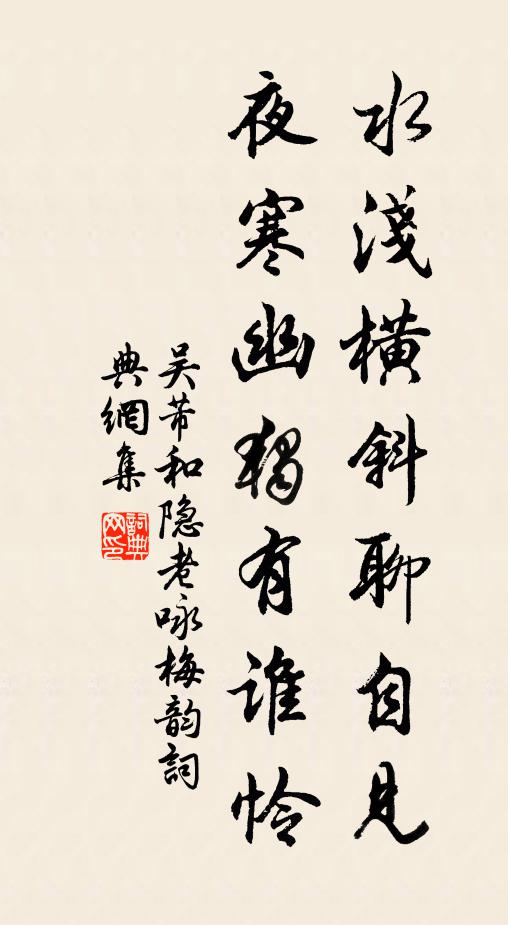 水淺橫斜聊自見
夜寒幽獨有誰怜
吴芾和隐老咏梅韵詞
典網集
詞典网印